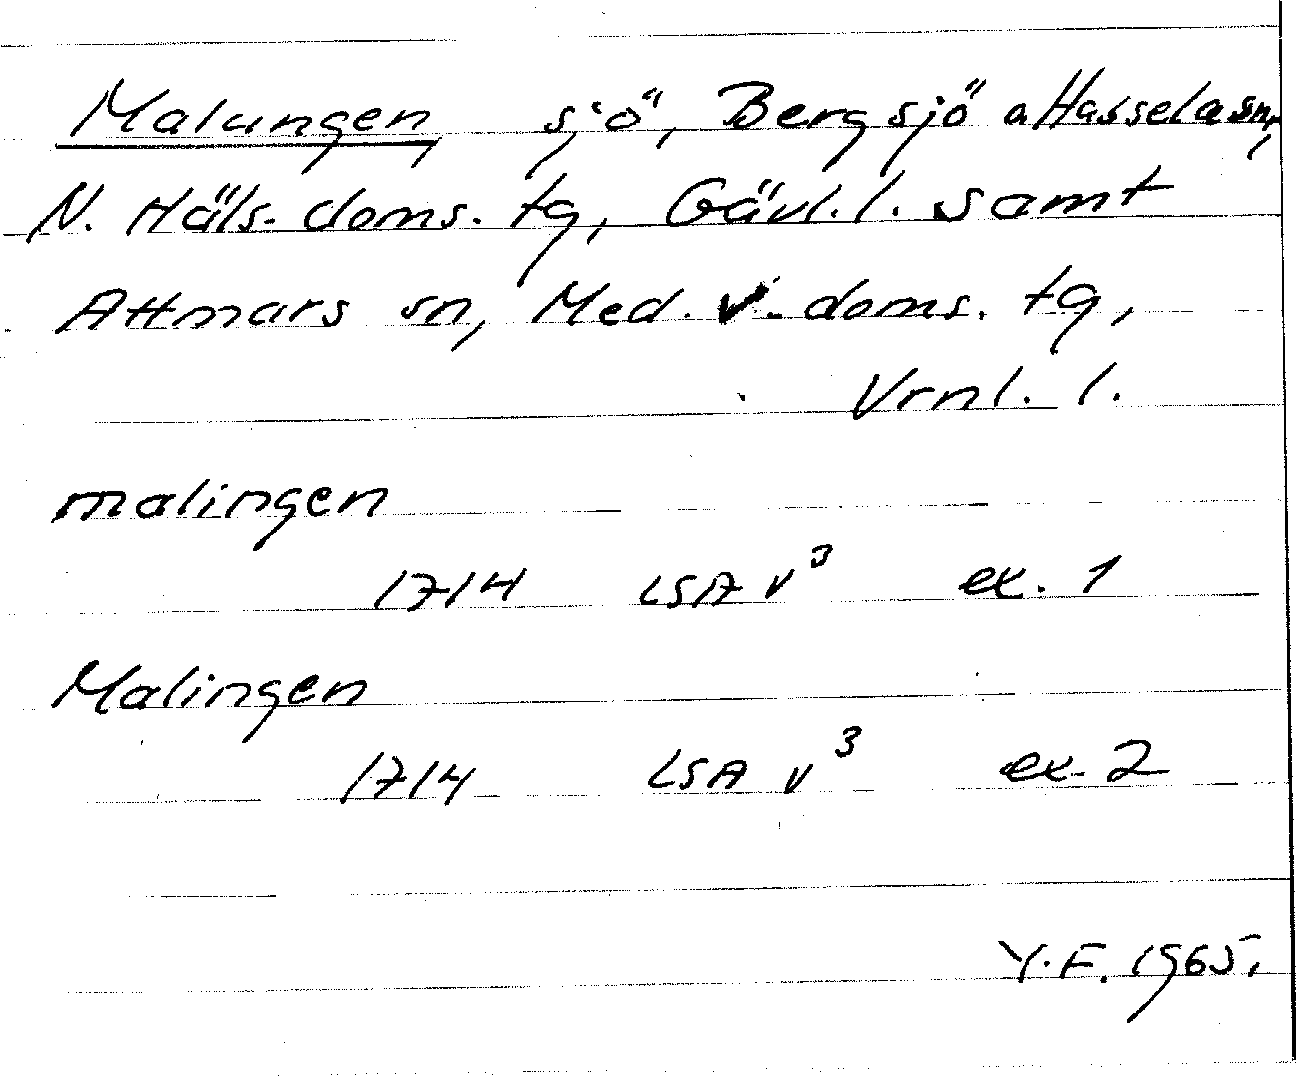 Malungen, sjö, Bergsjö o Hassela sn,
N. Häls. doms. tg, Gävl. l. samt
Attmars sn, Med. V. doms. tg,
Vrnl. l.
malingen
1714 LSA V³ ex. 1
Malingen
1714 LSA V³ ex. 2
Y.F. 1965.